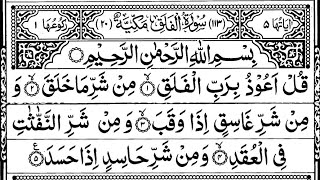 اٰیَاتُهَا ۵ (۱۱۳) سُوْرَةُ الْفَلَقِ مَكِّیَّةٌ (۲۰) رُكُوْعُهَا ۱
بِسْمِ اللّٰهِ الرَّحْمٰنِ الرَّحِیْمِ
قُلْ اَعُوْذُ بِرَبِّ الْفَلَقِ ۙ۱ مِنْ شَرِّ مَا خَلَقَ ۙ۲ وَ
مِنْ شَرِّ غَاسِقٍ اِذَا وَقَبَ ۙ۳ وَمِنْ شَرِّ النَّفّٰثٰتِ
فِی الْعُقَدِ ۙ۴ وَمِنْ شَرِّ حَاسِدٍ اِذَا حَسَدَ ۵ ع